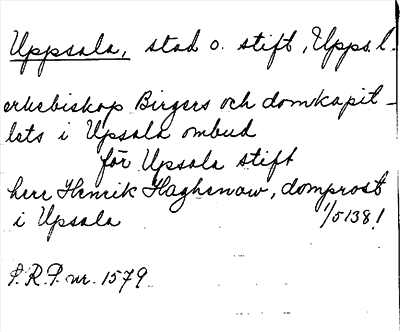 Uppsala, stad o. stift, Upps. l.
erkebiskop Birgers och domkapit-
lets i Upsala ombud
för Upsala stift
herr Henrik Haghenow, domprost
i Upsala 1/5 1381
P.R.P. nr. 1579